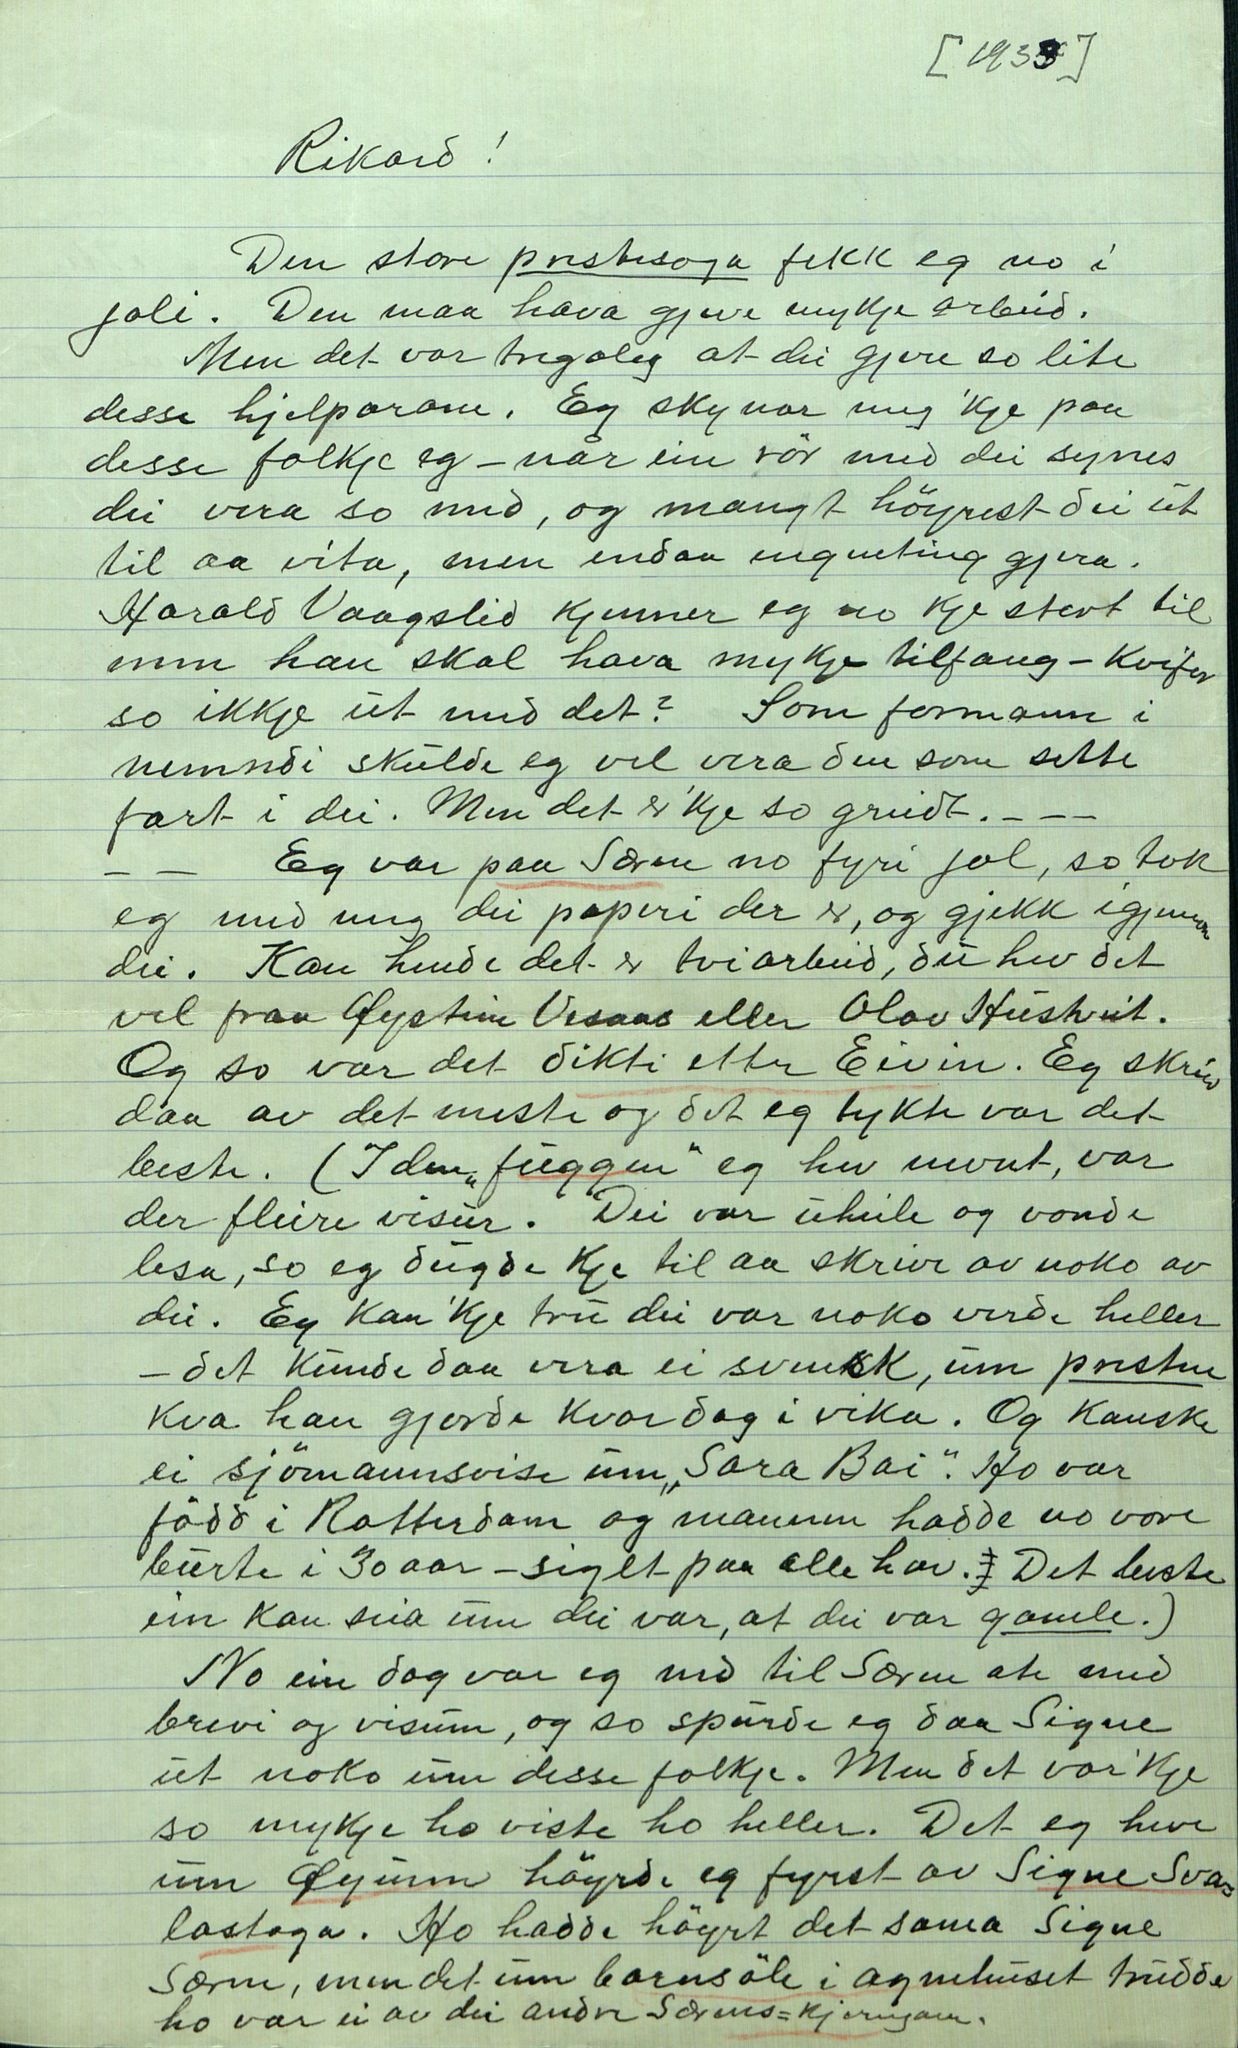 [1935]
Rikard!
Den store prestesoga fekk eg no i
joli. Den maa hava gjeve mykje arbeid.
Men det var tregaleg at dei gjere so lite
desse hjelparane. Eg skynar meg 'kje paa
desse folkje eg – når ein rör med dei synes
dei vera so med, og mangt höyrest dei út
til aa vita, men endaa ingenting gjera.
Harald Vaagslid kjenner eg no kje stort til
men han skal hava mykje tilfang – Kvifor
so ikkje út med det? Som formann i
nemndi skúlde eg vel vera den som sette
fart i dei. Men det er 'kje so greidt. – – –
– – Eg var paa Særen no fyri jol, so tok
eg med meg dei papiri der er, og gjekk igjenom
dei. Kan hende det er tviarbeid, dú hev det
vel fraa Øystein Vesaas eller Olav Hústveit.
Og so var det dikti etter Eivin. Eg skreiv
daa av det meste og det eg tykte var det
beste. (I den „fúggen" eg hev nevnt, var
der fleire visúr. Dei var úheile og vonde
lesa, so eg dúgde kje til aa skrive av noko av
dei. Eg kan 'kje trú dei var noko verde heller
– det kúnde daa vera ei svensk, úm presten
kva han gjorde kvar dag i vika. Og kanske
ei sjömannsvise úm „Sara Bai". Ho var
född i Rotterdam og mannen hadde no vore
búrte i 30 aar – siglt paa alle hav. Det beste
ein kan seia úm dei var, at dei var gamle.)
No ein dag var eg ned til Særen ate med
brevi og visúm, og so spúrde eg daa Signe
út noko úm desse folkje. Men det var 'kje
so mykje ho viste ho heller. Det eg heve
úm Øyúnn höyrde eg fyrst av Signe Sva-
lastoga. Ho hadde höyrt det sama Signe
Særen, men det úm barnsöle i agnehúset trúdde
ho var ei av dei andre Særens=kjeringane.